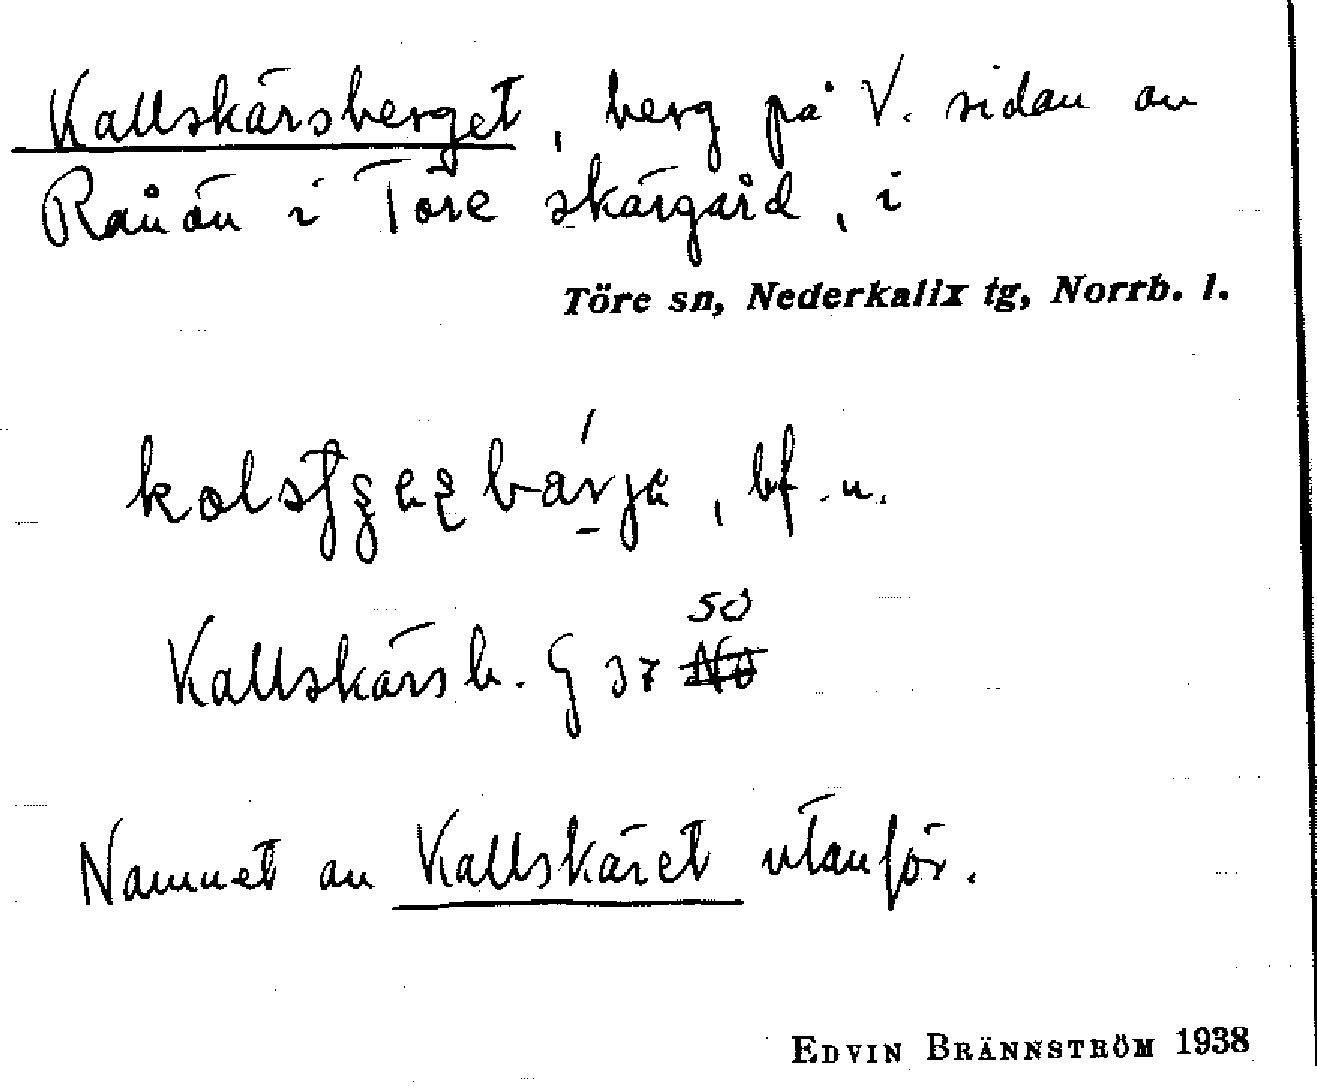 Kallskärsberget, berg på V. sidan av
Rånön i Töre skärgård, i
Töre sn, Nederkalix tg, Norrb. l.
bf. n.
SO
Kallskärsb. G 37 NO
Namnet av Kallskäret utanför.
EDVIN BRÄNNSTRÖM 1938